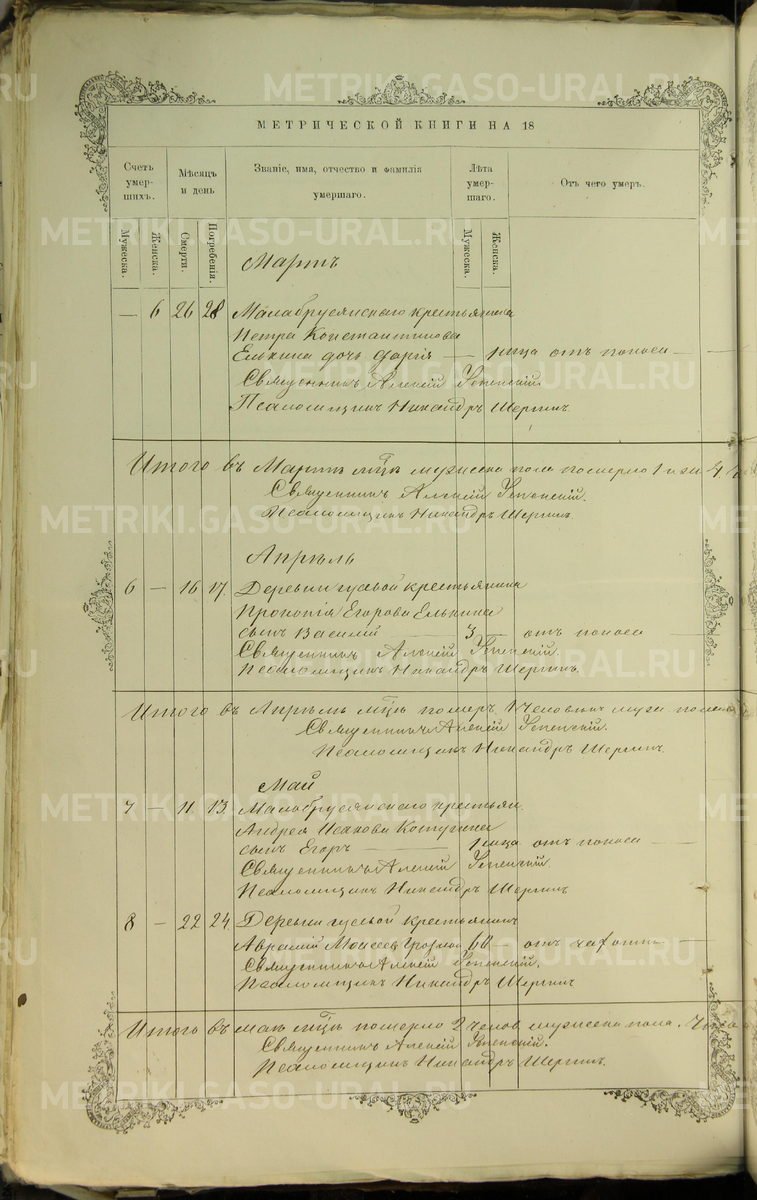 METRIKI.GASO-URAL.RU
МЕТРИЧЕСКОЙ КНИГИ НА 18
Счетъ умер- шихъ.
Мѣсяцъ и день
Званіе, имя, отчество и фамилія умершаго.
Лѣта умер- шаго.
Отъ чего умеръ.
Мужеска.
Женска.
Смерти.
Погребенія.
Мужеска.
Женска.
Мартъ
— 6 26 28 Малобрусянскаго крестьянина
Петра Константинова
Елькина дочь — 1 мѣца отъ поноса —
Священникъ Алексій Успенскій
Псаломщикъ Никандръ Шергинъ
Итого въ Мартѣ мцѣ мужеска пола померло 1 и жен 4
Священникъ Алексій Успенскій.
Псаломщикъ Никандръ Шергинъ
Апрѣль
6 — 16 17. Деревни Гусевой крестьянина
Прокопія Егорова Елькина
сынъ Василій 3 — отъ поноса —
Священникъ Алексій Успенскій.
Псаломщикъ Никандръ Шергинъ.
Итого въ Апрѣлѣ мцѣ померъ 1 человѣкъ муж. пола
Священникъ Алексій Успенскій.
Псаломщикъ Никандръ Шергинъ.
Май
7 — 11 13 Малобрусянскаго крестьян.
Андрея Исакова
сынъ Егоръ — 1 мѣца отъ поноса —
Священникъ Алексій Успенскій
Псаломщикъ Никандръ Шергинъ
8 — 22 24 Деревни Гусевой крестьянинъ
Аврамій Моисеевъ 60 — отъ чахотки —
Священникъ Алексій Успенскій.
Псаломщикъ Никандръ Шергинъ
Итого въ маѣ мцѣ померло 2 челов мужеска пола.
Священникъ Алексій Успенскій.
Псаломщикъ Никандръ Шергинъ.